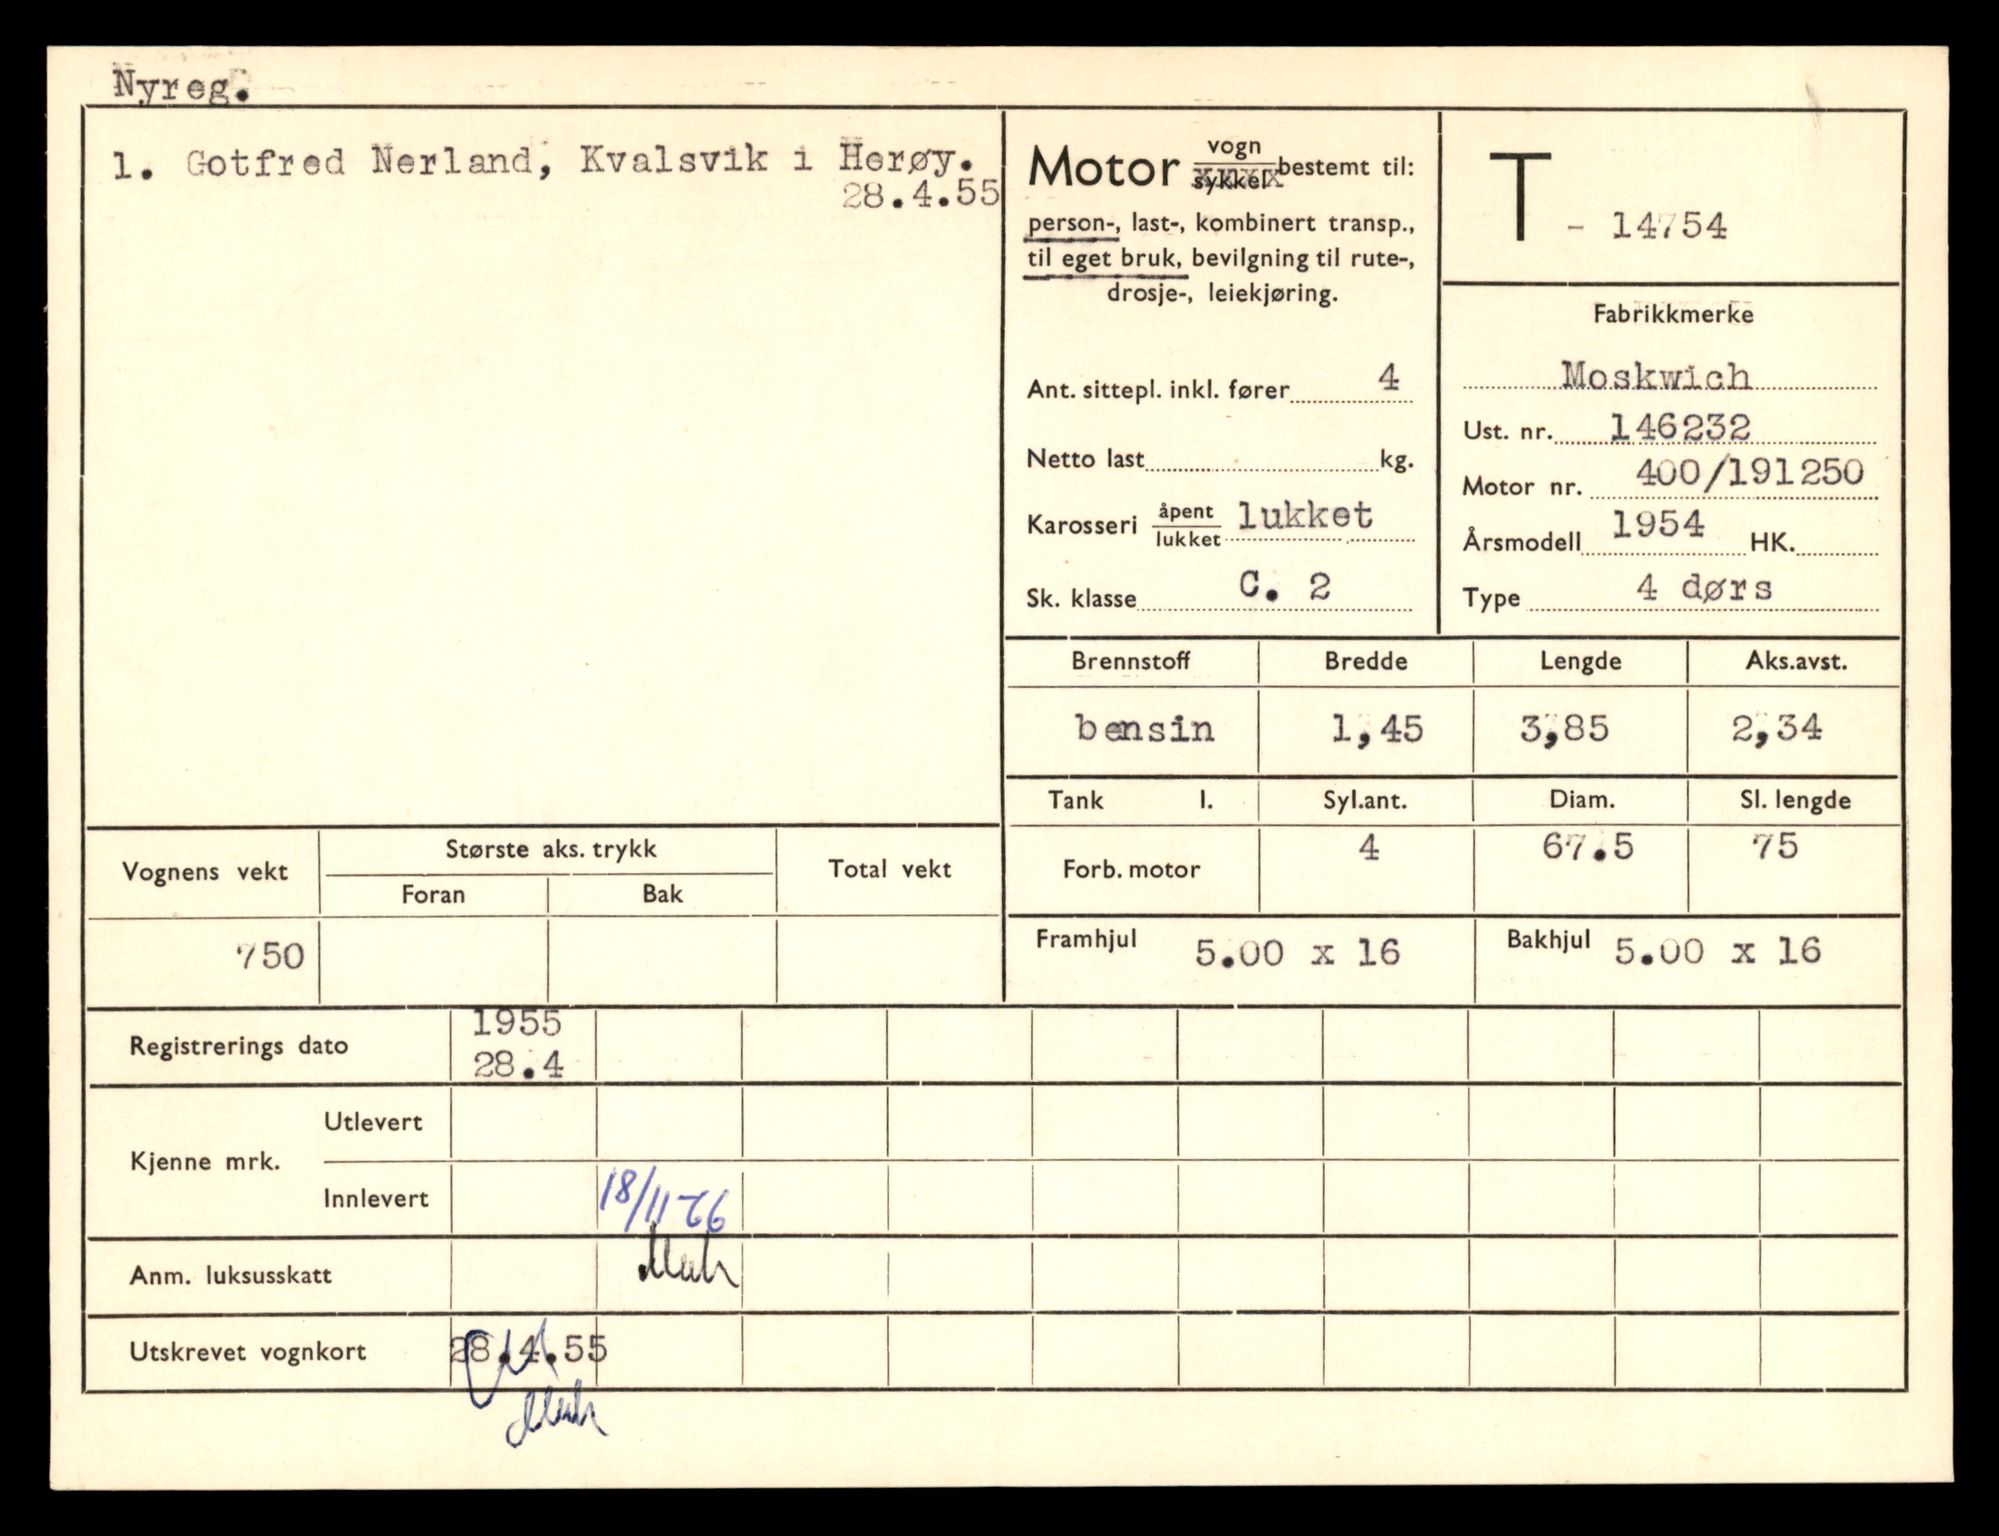 Nyreg.
1. Gotfred Nerland, Kvalsvik i Herøy.
28.4.55
Motor vogn sykkel bestemt til:
person-, last-, kombinert transp.,
til eget bruk, bevilgning til rute-,
drosje-, leiekjøring.
Ant. sittepl. inkl. fører 4
Netto last kg.
Karosseri åpent lukket lukket
Sk. klasse C. 2
T - 14754
Fabrikkmerke
Moskwich
Ust. nr. 146232
Motor nr. 400/191250
Årsmodell 1954 HK.
Type 4 dørs
Brennstoff Bredde Lengde Aks.avst.
bensin 1,45 3,85 2,34
Tank l. Syl.ant. Diam. Sl. lengde
Forb. motor 4 67.5 75
Framhjul 5.00 x 16 Bakhjul 5.00 x 16
Vognens vekt Største aks. trykk Total vekt
Foran Bak
750
Registrerings dato 1955
28.4
Kjenne mrk. Utlevert
Innlevert 18/11-66
Anm. luksusskatt
Utskrevet vognkort 28.4.55